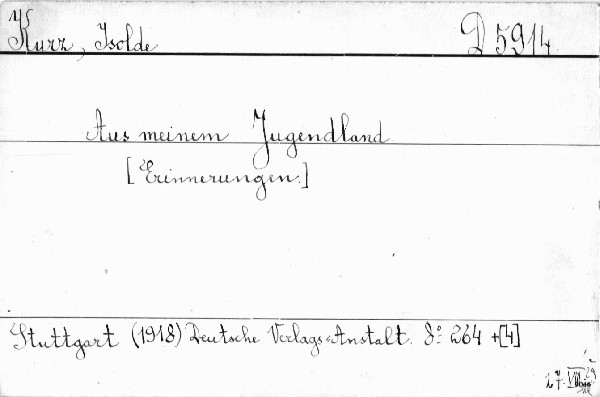 Kurz, Isolde D 5914.
Aus meinem Jugendland.
[Erinnerungen.]
Stuttgart (1918) Deutsche Verlags=Anstalt. 8º 264 +[4]
27. VIII